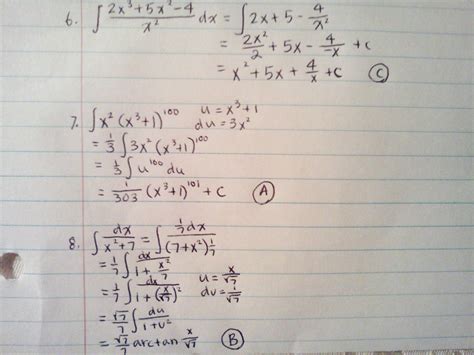 6. ∫ (2x³+5x²-4)/x² dx = ∫ 2x + 5 - 4/x²
= 2x²/2 + 5x - 4/-x + c
= x² + 5x + 4/x + c (C)
7. ∫ x² (x³+1)^100 u = x³+1
du = 3x²
= 1/3 ∫ 3x² (x³+1)^100
= 1/3 ∫ u^100 du
= 1/303 (x³+1)^101 + C (A)
8. ∫ dx/(x²+7) = ∫ (1/7 dx)/((7+x²)1/7)
= 1/7 ∫ dx/(1+x²/7)
= 1/7 ∫ dx/(1+(x/√7)²) u = x/√7
du = 1/√7
= √7/7 ∫ du/(1+u²)
= √7/7 arctan x/√7 (B)